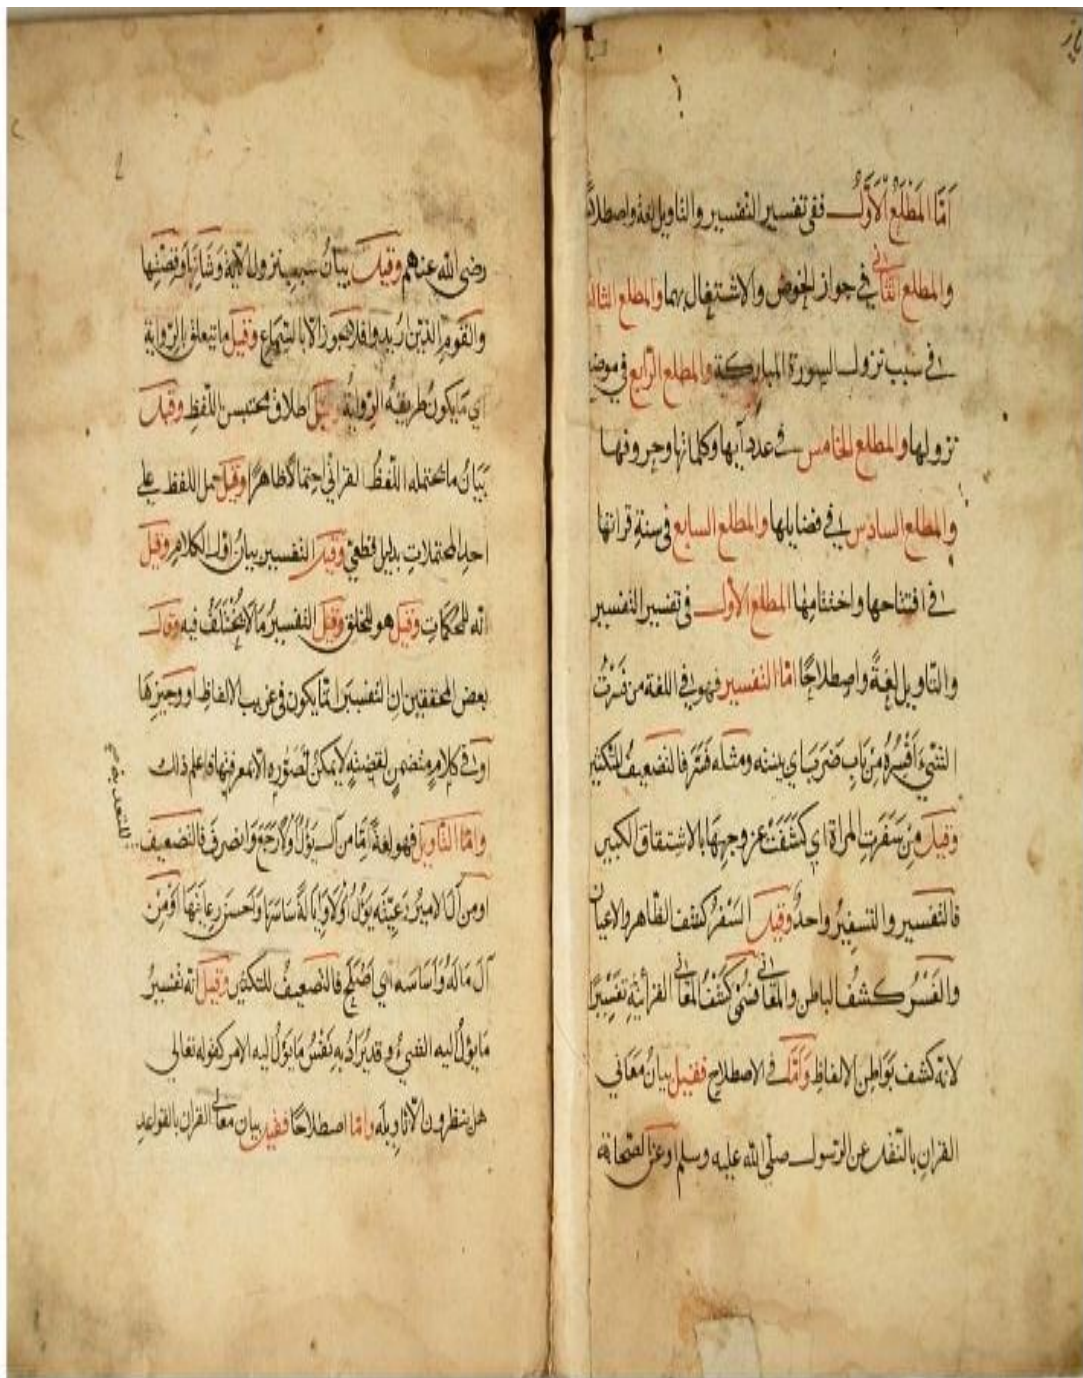 اَمَّا المَطْلَعُ الاَوَّلُ ففى تفسير التفسير والتاويل لغة واصطلاحًا
والمطلع الثاني في جواز الخوض والاشتغال بهما والمطلع الثالث
في سبب نزول السورة المباركة والمطلع الرابع في موضع
نزولها والمطلع الخامس في عدد آيها وكلماتها وحروفها
والمطلع السادس في فضايلها والمطلع السابع في سنة قراتها
في افتتاحها واختتامها المطلع الاول في تفسير التفسير
والتاويل لغةً واصطلاحًا امّا التفسير فهو في اللغة من فسرتُ
الشيءَ اَفْسِرُهُ مِنْ بَابِ ضَرَبَ اي بينته ومثله فَسَّرَ فالتضعيفُ للتكثير
وقيل مِنْ سَفَرَتِ المراة اي كَشَفَتْ عن وجهِهَا بالاشتقاق الكبير
فالتفسير والتسفيرُ واحدٌ وقيل السَفْرُ كشف الظاهر والاعيان
والفَسْرُ كشفُ الباطن والمَعَاني فسُمّي كَشْفُ المعاني القرآنيّةِ تفسيرًا
لانه كشف بَوَاطِن الالفاظِ وَاَمَّا في الاصطلاح فقيل بيانُ مَعَاني
القران بالنقل عن الرسول صلّى الله عليه وسلم او عن الصحابة
رضى الله عنهم وقيل بيانُ سببِ نزول الاية وَشَأنِهَا وقِصَّتِها
والقَومِ الذين اُرِيدوا فلا يجوز الا بالسّماع وقيل ما يتعلق بالرّواية
اي مَا يكون طريقُهُ الروايةُ وقيل اطلاق محتبس اللفظ وقيل
بَيَانُ ما يحتمله اللفظُ القراني احتمالاً ظاهرًا وقيل حمل اللفظ على
احد المحتملاتِ بدليل قطعيّ وقيل التفسير بيانُ اول الكلام وقيل
انه للمحكماتِ وقيل هو للخلق وقيل التفسيرُ مَا لاَ يُخْتَلَفُ فيه وقال
بعض المحققين ان التفسيرَ انما يكون في غريب الالفاظ او وجيزِهَا
او في كلامٍ متضمنٍ لقصّتِهٖ لا يمكن تصوّره الا بمعرفتها فاعلم ذلك
وامّا التأويل فهو لغةً اِمَّا من آل يؤلُ اَوْلاً رَجَعَ وَانصرف فالتضعيف
للتعديه
او من آلَ الاميرُ رَعِيّتَه يؤلُ اَوْلاً وَاِيَالةً سَاسَهَا وَاَحسَنَ رِعايَتَهَا اَوْمِنْ
آلَ مَالَهُ وَاَسَاسَه اي اَصْلَحَ فالتضعيفُ للتكثير وقيل انه تفسيرُ
مَا يؤلُ اليه الشيءُ وقد يُرَادُ بِهِ نَفْسُ مَا يَؤلُ اليه الامر كقوله تعالى
هل ينظرون الا تاويلَه وامّا اصطلاحًا فقيل بيان معاني القران بالقواعد